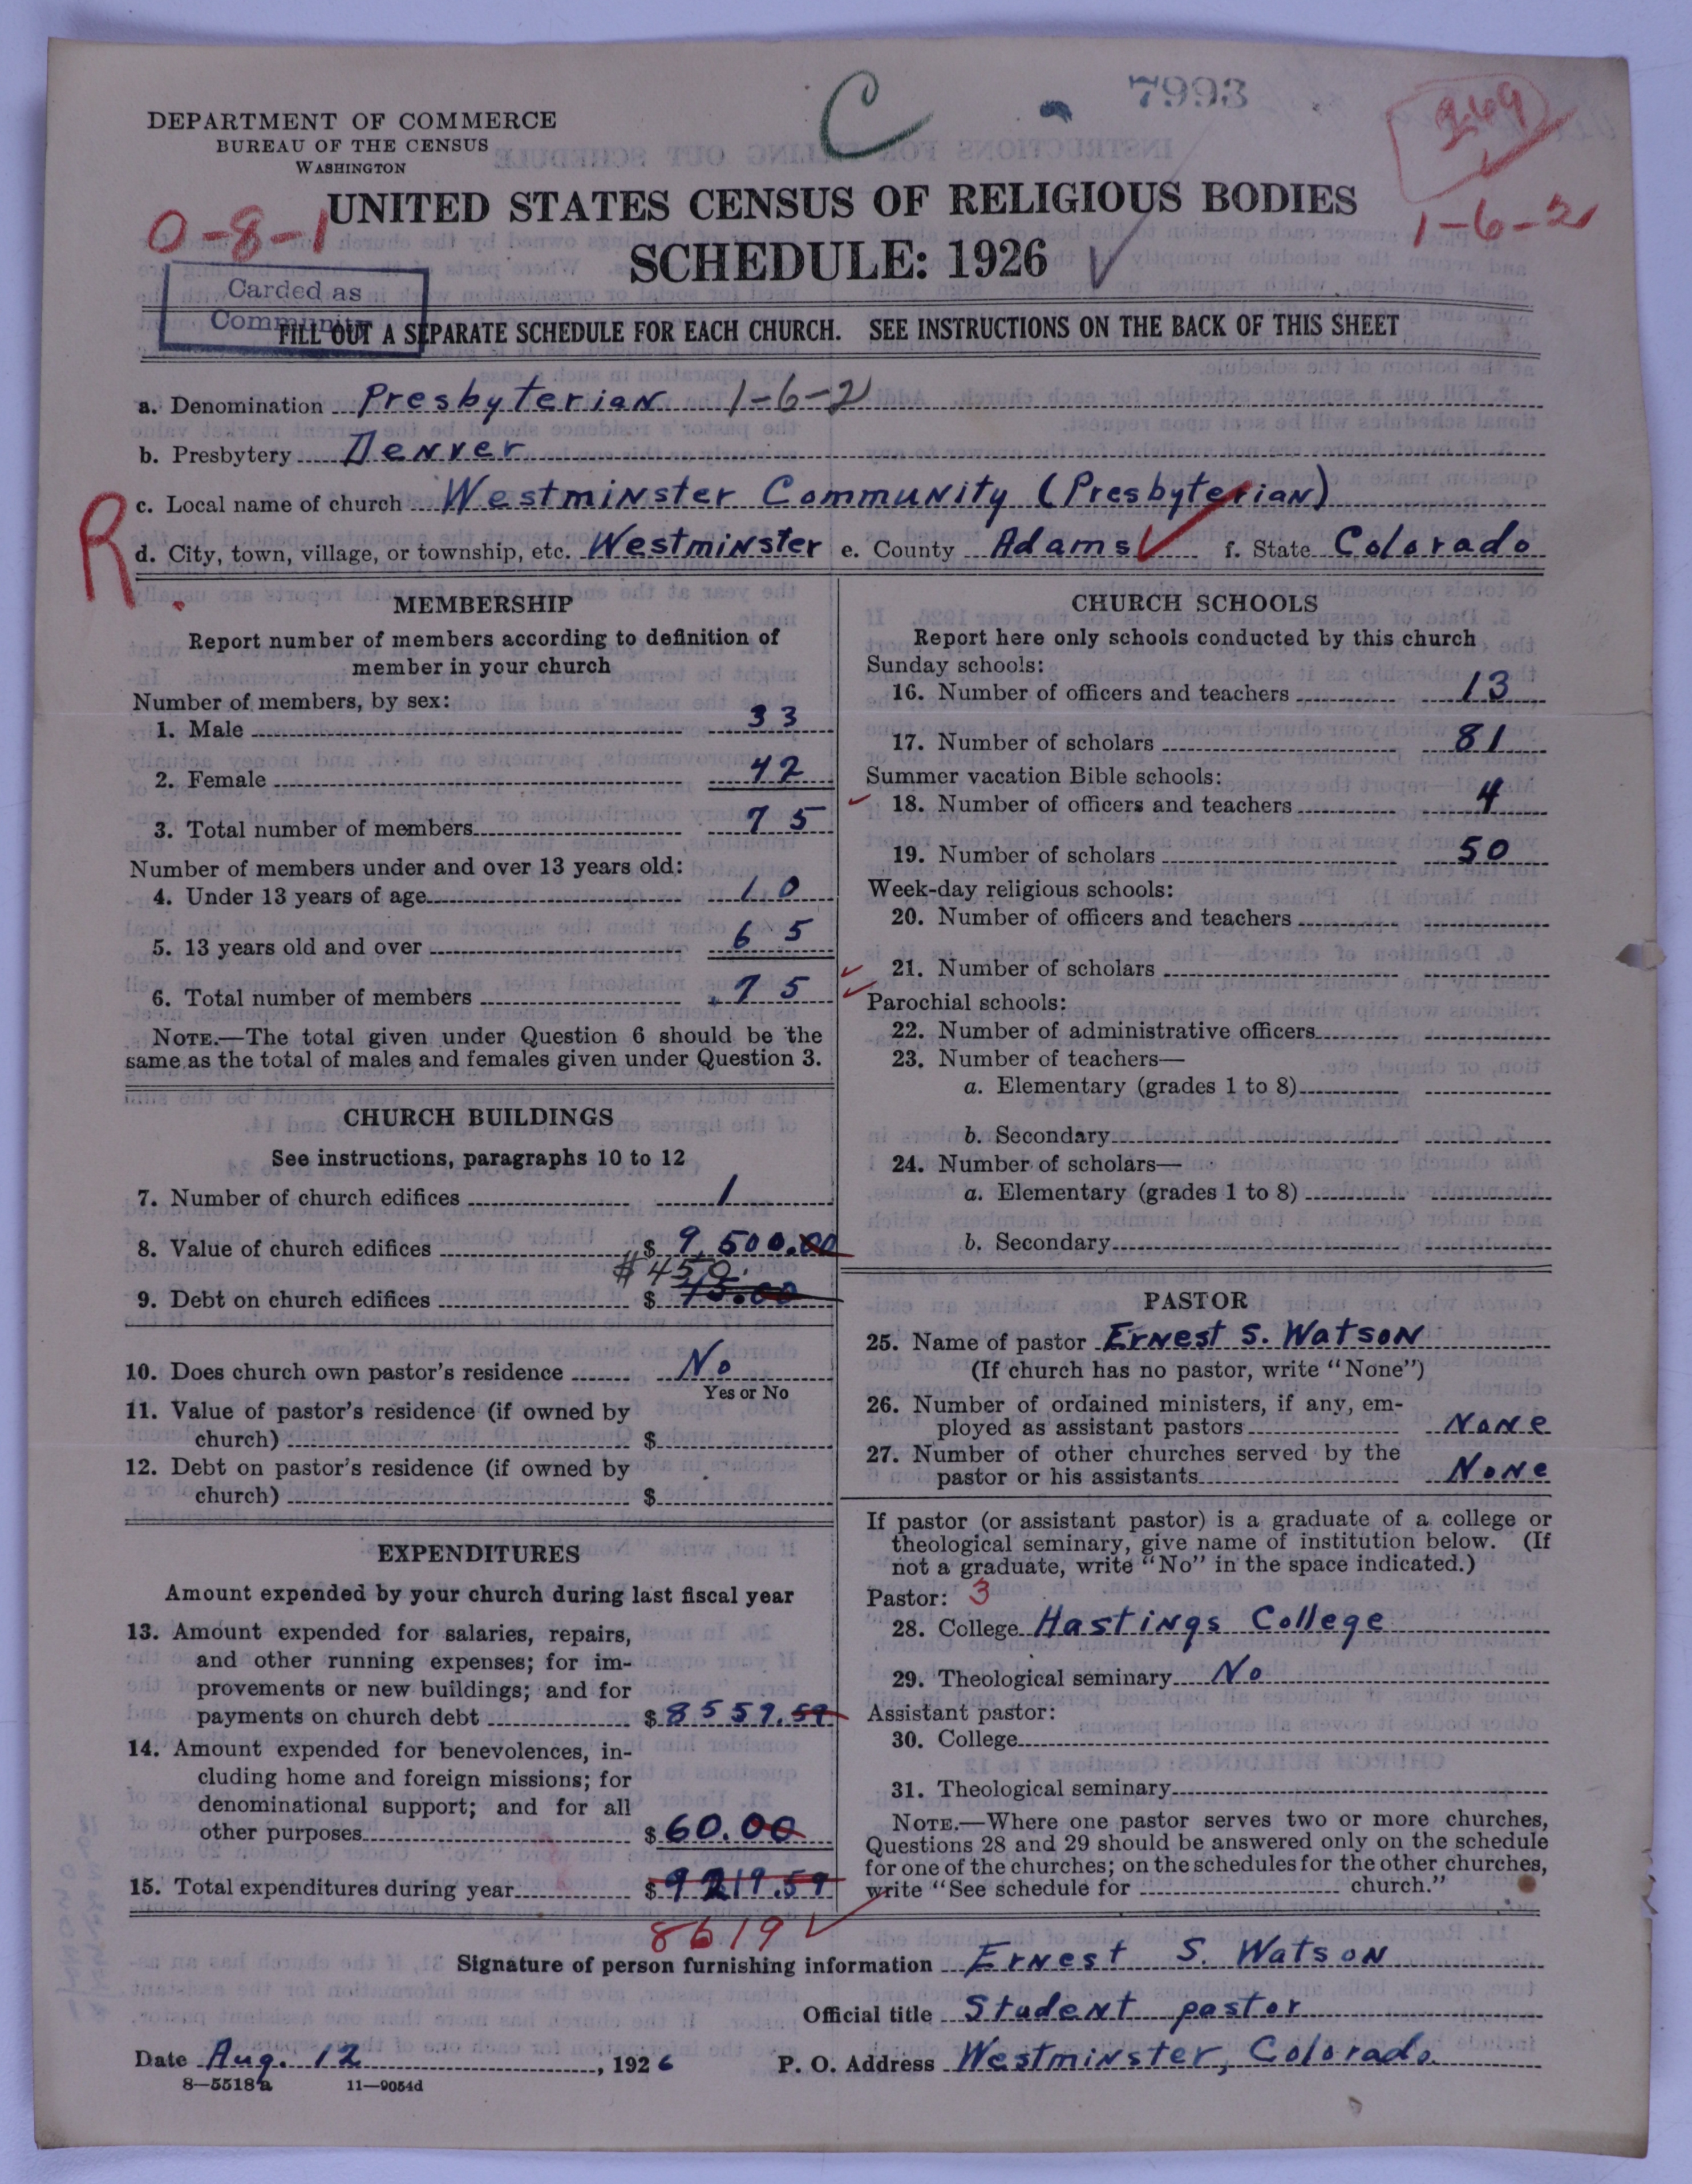 7993
C
269
DEPARTMENT OF COMMERCE
BUREAU OF THE CENSUS
WASHINGTON
UNITED STATES CENSUS OF RELIGIOUS BODIES
SCHEDULE: 1926
0-8-1
1-6-2
Carded as
Community
FILL OUT A SEPARATE SCHEDULE FOR EACH CHURCH. SEE INSTRUCTIONS ON THE BACK OF THIS SHEET
a. Denomination Presbyterian 1-6-2
b. Presbytery Denver
c. Local name of church Westminster Community (Presbyterian)
R
d. City, town, village, or township, etc. Westminster e. County Adams f. State Colorado
MEMBERSHIP
Report number of members according to definition of
member in your church
Number of members, by sex:
1. Male 33
2. Female 42
3. Total number of members 75
Number of members under and over 13 years old:
4. Under 13 years of age 10
5. 13 years old and over 65
6. Total number of members 75
NOTE.—The total given under Question 6 should be the
same as the total of males and females given under Question 3.
CHURCH BUILDINGS
See instructions, paragraphs 10 to 12
7. Number of church edifices 1
8. Value of church edifices $ 9,500.00
$450.
9. Debt on church edifices $
10. Does church own pastor's residence No
Yes or No
11. Value of pastor's residence (if owned by
church) $
12. Debt on pastor's residence (if owned by
church) $
EXPENDITURES
Amount expended by your church during last fiscal year
13. Amount expended for salaries, repairs,
and other running expenses; for im-
provements or new buildings; and for
payments on church debt $ 8559.59
14. Amount expended for benevolences, in-
cluding home and foreign missions; for
denominational support; and for all
other purposes $ 60.00
15. Total expenditures during year $ 9219.59
8619
CHURCH SCHOOLS
Report here only schools conducted by this church
Sunday schools:
16. Number of officers and teachers 13
17. Number of scholars 81
Summer vacation Bible schools:
18. Number of officers and teachers 4
19. Number of scholars 50
Week-day religious schools:
20. Number of officers and teachers
21. Number of scholars
Parochial schools:
22. Number of administrative officers
23. Number of teachers—
a. Elementary (grades 1 to 8)
b. Secondary
24. Number of scholars—
a. Elementary (grades 1 to 8)
b. Secondary
PASTOR
25. Name of pastor Ernest S. Watson
(If church has no pastor, write "None")
26. Number of ordained ministers, if any, em-
ployed as assistant pastors None
27. Number of other churches served by the
pastor or his assistants None
If pastor (or assistant pastor) is a graduate of a college or
theological seminary, give name of institution below. (If
not a graduate, write "No" in the space indicated.)
Pastor: 3
28. College Hastings College
29. Theological seminary No
Assistant pastor:
30. College
31. Theological seminary
NOTE.—Where one pastor serves two or more churches,
Questions 28 and 29 should be answered only on the schedule
for one of the churches; on the schedules for the other churches,
write "See schedule for church."
Signature of person furnishing information Ernest S. Watson
Official title Student pastor
Date Aug. 12, 1926 P. O. Address Westminster, Colorado
8—5518a 11—9054d